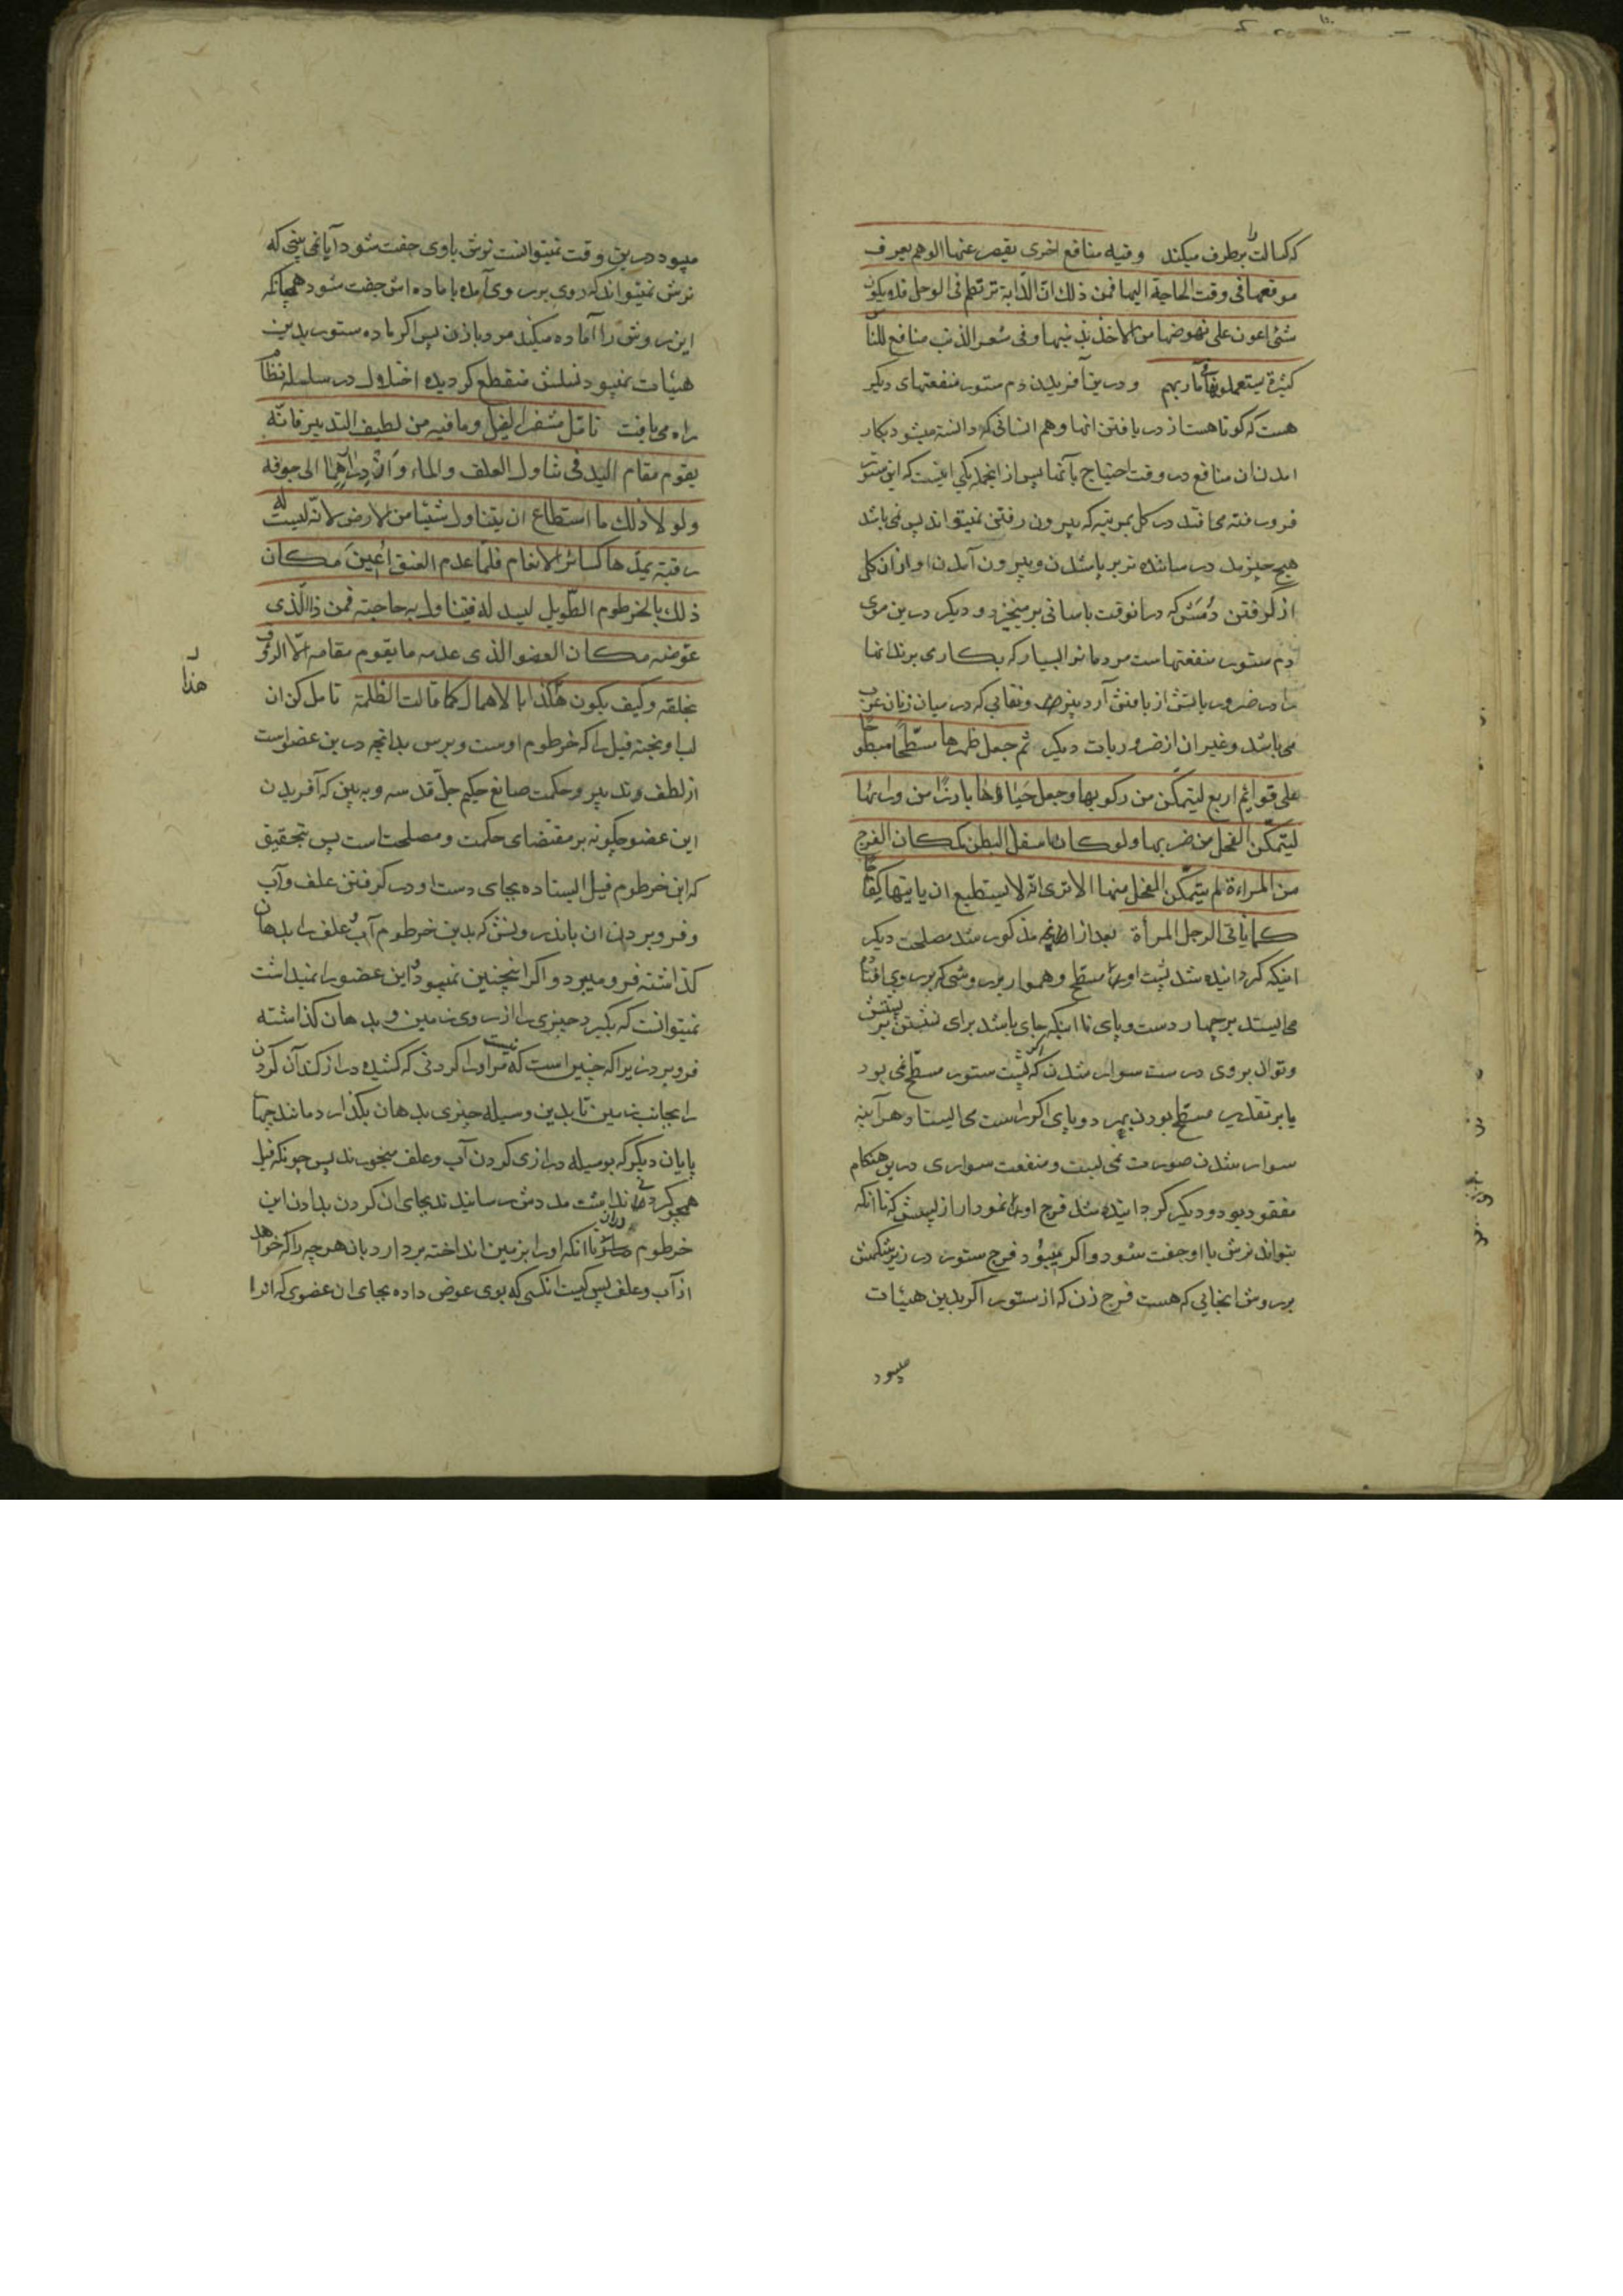 که کسالت را برطرف میکند وفیه منافع اخری یقصر عنها الوهم یعرف
موقعها فی وقت الحاجة الیها فمن ذلك انّ الدّابة ترتطم فی الوحل فلا یکون
شئی اعون علی نهوضها من الاخذ بذنبها وفی شعر الذنب منافع للناس
کثیرة یستعملونها فی مآربهم ودرین آفریدن دم ستور منفعتهای دیکر
هست که کوتاهست از دریافتن انها وهم انسانی که دانسته میشود بکار
امدن ان منافع در وقت احتیاج بآنها پس از انجمله یکی اینست که این ستور
فرو رفته می افتد در کل بمرتبه که بیرون رفتن نمیتواند پس نمی باشد
هیچ چیز مدد رساننده تر بر پا شدن و بیرون آمدن او از ان کل
از کرفتن دمش که درانوقت باسانی برمیخیزد و دیکر درین موی
دم ستور منفعتهاست مردمانرا بسیار که بکار می برند انها
را در ضرور یاتش از بافتن آرد بیزها و نقابی که در میان زنان عرب
می باشد وغیر ان از ضروریات دیکر ثم جعل ظهرها مسطّحا مبطوحا
علی قوائم اربع لیتمکّن من رکوبها وجعل حیاؤها بارزا من ورائها
لیتمکّن الفحل من ضربها ولو کان اسفل البطن کمکان الفرج
من المراءة لم یتمکّن الفحل منها الا تری انّه لا یستطیع ان یاتیها کفاحا
کما یاتی الرجل المرأة بعد از انچه مذکور شد مصلحت دیکر
اینکه کردانیده شد پشت او را مسطّح و هموار بر روشی که بر روی افتاده
می ایستد بر چهار دست و پای تا اینکه جای باشد برای نشستن بر پشتش
وتوان بروی درست سوار شدن که اکر پشت ستور مسطّح نمی بود
یا بر تقدیر مسطّح بودن بر دو پای اکر راست می ایستاد هر آینه
سوار شدن صورت نمی بست و منفعت سواری درین هنکام
مفقود بود و دیکر کردانیده شد فرج او را نمودار از پسش که تا انکه
بتواند نرش با او جفت شود و اکر میبود فرج ستور در زیر شکمش
بر روش انجایی که هست فرج زن که از ستور اکر بدین هیئات
میبود
میبود درین وقت نمیتوانست نرش باوی جفت شود آیا نمی بینی که
نرش نمیتواند که روی بر روی آمده با ماده اش جفت شود همچنانکه
این روش را آماده میکند مرد با زن پس اکر ماده ستور بدین
هیئات نمیبود نسلش منقطع کردیده اختلال در سلسله نظام
راه می یافت تامّل مشفر الفیل وما فیه من لطیف التدبیر فانّه
یقوم مقام الید فی تناول العلف والماء وازدرادهما الی جوفه
ولولا ذلك ما استطاع ان یتناول شیئا من الارض لانّه لیست له
رقبة یمدّها کسائر الانعام فلمّا عدم العنق اعین مکان
ذلك بالخرطوم الطّویل لیسدله فیتناول به حاجته فمن ذا الّذی
عوّضه مکان العضو الذی عدمه ما یقوم مقامه الّا الروف
بخلقه وکیف یکون هکذا بالاهمال کما قالت الظلمة تامل کن ان
هذا
لب اویخته فیل را که خرطوم اوست و برس بدانچه درین عضو است
از لطف و تدبیر و حکمت صانع حکیم جلّ قدسه و به بین که آفریدن
این عضو چکونه بر مقتضای حکمت و مصلحت است پس بتحقیق
که این خرطوم فیل ایستاده بجای دست او در کرفتن علف و آب
و فرو بردن ان باندرونش که بدین خرطوم آب و علف را بدهان
کذاشته فرو میبرد و اکر اینچنین نمیبود و این عضو را نمیداشت
نمیتوانست که بکیرد چیزی را از روی زمین و بدهان کذاشته
فرو برد زیرا که چنین است که نیست مر او را کردنی که کشیده دراز کند آن کردن
را بجانب زمین تا بدین وسیله چیزی بدهان بکذارد مانند چهار
پایان دیکر که بوسیله درازی کردن آب و علف میخورند پس چونکه فیل
همچو کردنی نداشت مدد رسانیدند بجای ان کردن بدادن این
خرطوم دراز تا انکه او را بزمین انداخته بردارد بان هرچه را که خواهد
از آب و علف پس کیست انکسی که بوی عوض داده بجای ان عضوی که او را